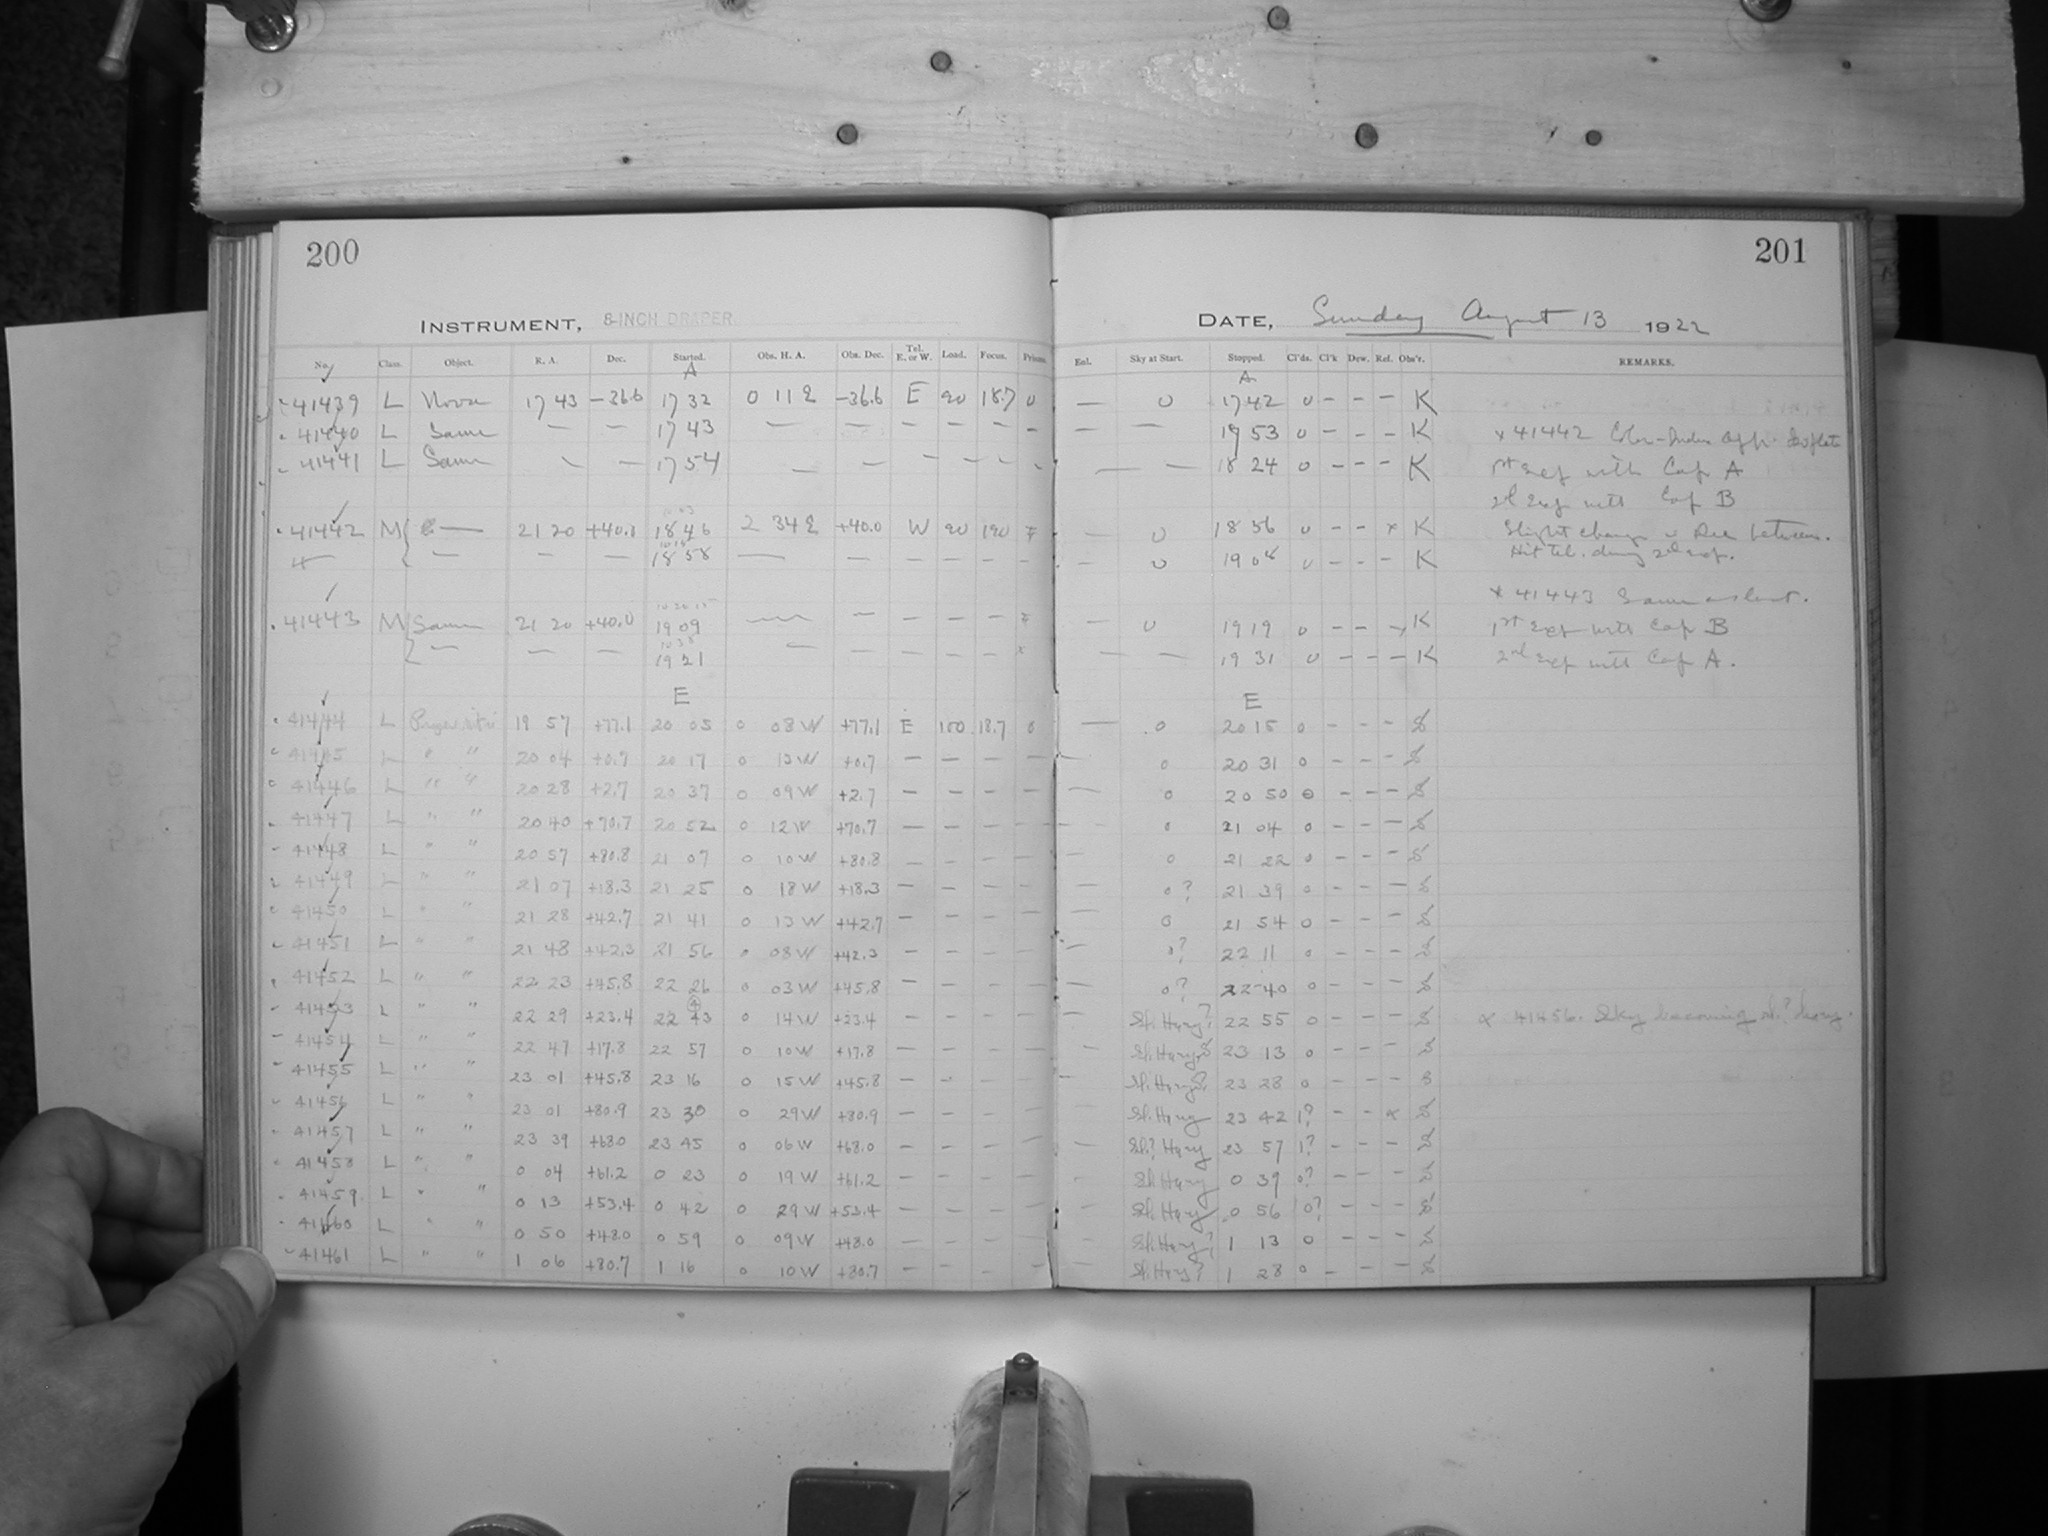 200
201
INSTRUMENT, 8-INCH DRAPER
DATE, Sunday August 13 1922
No. Class. Object. R. A. Dec. Started. Obs. H. A. Obs. Dec. Tel. E. or W. Load. Focus. Prism. Enl. Sky at Start. Stopped. Cl'ds. Cl'k Dew. Ref. Obs'r. REMARKS.
A A
41439 L Nova 17 43 -36.6 17 32 0 11 E -36.6 E 90 18.7 0 — 0 17 42 0 - - - K
41440 L Same — — 17 43 — — — — — - — — 19 53 0 - - - K × 41442 Color-Index
41441 L Same — — 17 54 — — — — — - — — 18 24 0 - - - K 1st exp with Cap A
2d exp with Cap B
41442 M — 21 20 +40.0 18 46 2 34 E +40.0 W 90 190 — 0 18 56 0 - - × K Slight change in Dec between.
— — — 18 58 — — — — — - — 0 19 08 0 - - - K Hit tel. during 2d exp.
× 41443 Same as last.
41443 M Same 21 20 +40.0 19 09 — — — — — — 0 19 19 0 - - K 1st exp with Cap B
— — — 19 21 — — — — — — — 19 31 0 - - - K 2nd exp with Cap A.
E E
41444 L 19 57 +77.1 20 05 0 08 W +77.1 E 100 18.7 0 — 0 20 15 0 - - - S
41445 L " " 20 04 +0.7 20 17 0 13 W +0.7 — — — — — 0 20 31 0 - - - S
41446 L " " 20 28 +2.7 20 37 0 09 W +2.7 — — — — — 0 20 50 0 - - - S
41447 L " " 20 40 +70.7 20 52 0 12 W +70.7 — — — — — 0 21 04 0 - - - S
41448 L " " 20 57 +80.8 21 07 0 10 W +80.8 — — — — — 0 21 22 0 - - - S
41449 L " " 21 07 +18.3 21 25 0 18 W +18.3 — — — — — 0? 21 39 0 - - - S
41450 L " " 21 28 +42.7 21 41 0 13 W +42.7 — — — — — 0 21 54 0 - - - S
41451 L " " 21 48 +42.3 21 56 0 08 W +42.3 — — — — — 0? 22 11 0 - - - S
41452 L " " 22 23 +45.8 22 26 0 03 W +45.8 — — — — — 0? 22 40 0 - - - S
41453 L " " 22 29 +23.4 22 43 0 14 W +23.4 — — — — — Sl. Hazy? 22 55 0 - - - S × 41456. Sky becoming sl.? hazy.
41454 L " " 22 47 +17.8 22 57 0 10 W +17.8 — — — — — Sl. Hazy? 23 13 0 - - - S
41455 L " " 23 01 +45.8 23 16 0 15 W +45.8 — — — — — Sl. Hazy? 23 28 0 - - - S
41456 L " " 23 01 +80.9 23 30 0 29 W +80.9 — — — — — Sl. Hazy 23 42 1? - - × S
41457 L " " 23 39 +68.0 23 45 0 06 W +68.0 — — — — — Sl.? Hazy 23 57 1? - - - S
41458 L " " 0 04 +61.2 0 23 0 19 W +61.2 — — — — — Sl. Hazy 0 39 0? - - - S
41459 L " " 0 13 +53.4 0 42 0 29 W +53.4 — — — — — Sl. Hazy 0 56 0? - - - S
41460 L " " 0 50 +48.0 0 59 0 09 W +48.0 — — — — — Sl. Hazy? 1 13 0 - - - S
41461 L " " 1 06 +80.7 1 16 0 10 W +80.7 — — — — — Sl. Hazy? 1 28 0 - - - S